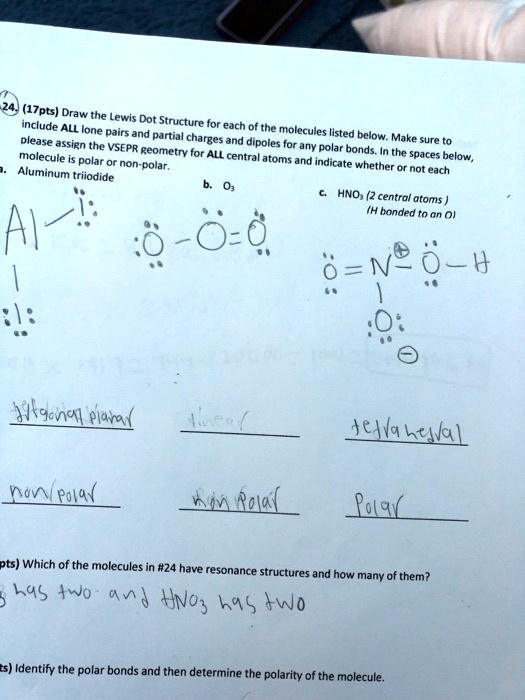 24. (17pts) Draw the Lewis Dot Structure for each of the molecules listed below. Make sure to
include ALL lone pairs and partial charges and dipoles for any polar bonds. In the spaces below,
please assign the VSEPR geometry for ALL central atoms and indicate whether or not each
molecule is polar or non-polar.
Aluminum triiodide
b. O₃
c. HNO₃ (2 central atoms )
(H bonded to an O)
Al - I
I
O - O = O
O = N - O - H
⊕
O
⊖
planar
tetrahedral
non/polar
Polar
Polar
pts) Which of the molecules in #24 have resonance structures and how many of them?
3 has two and HNO3 has two
ts) Identify the polar bonds and then determine the polarity of the molecule.